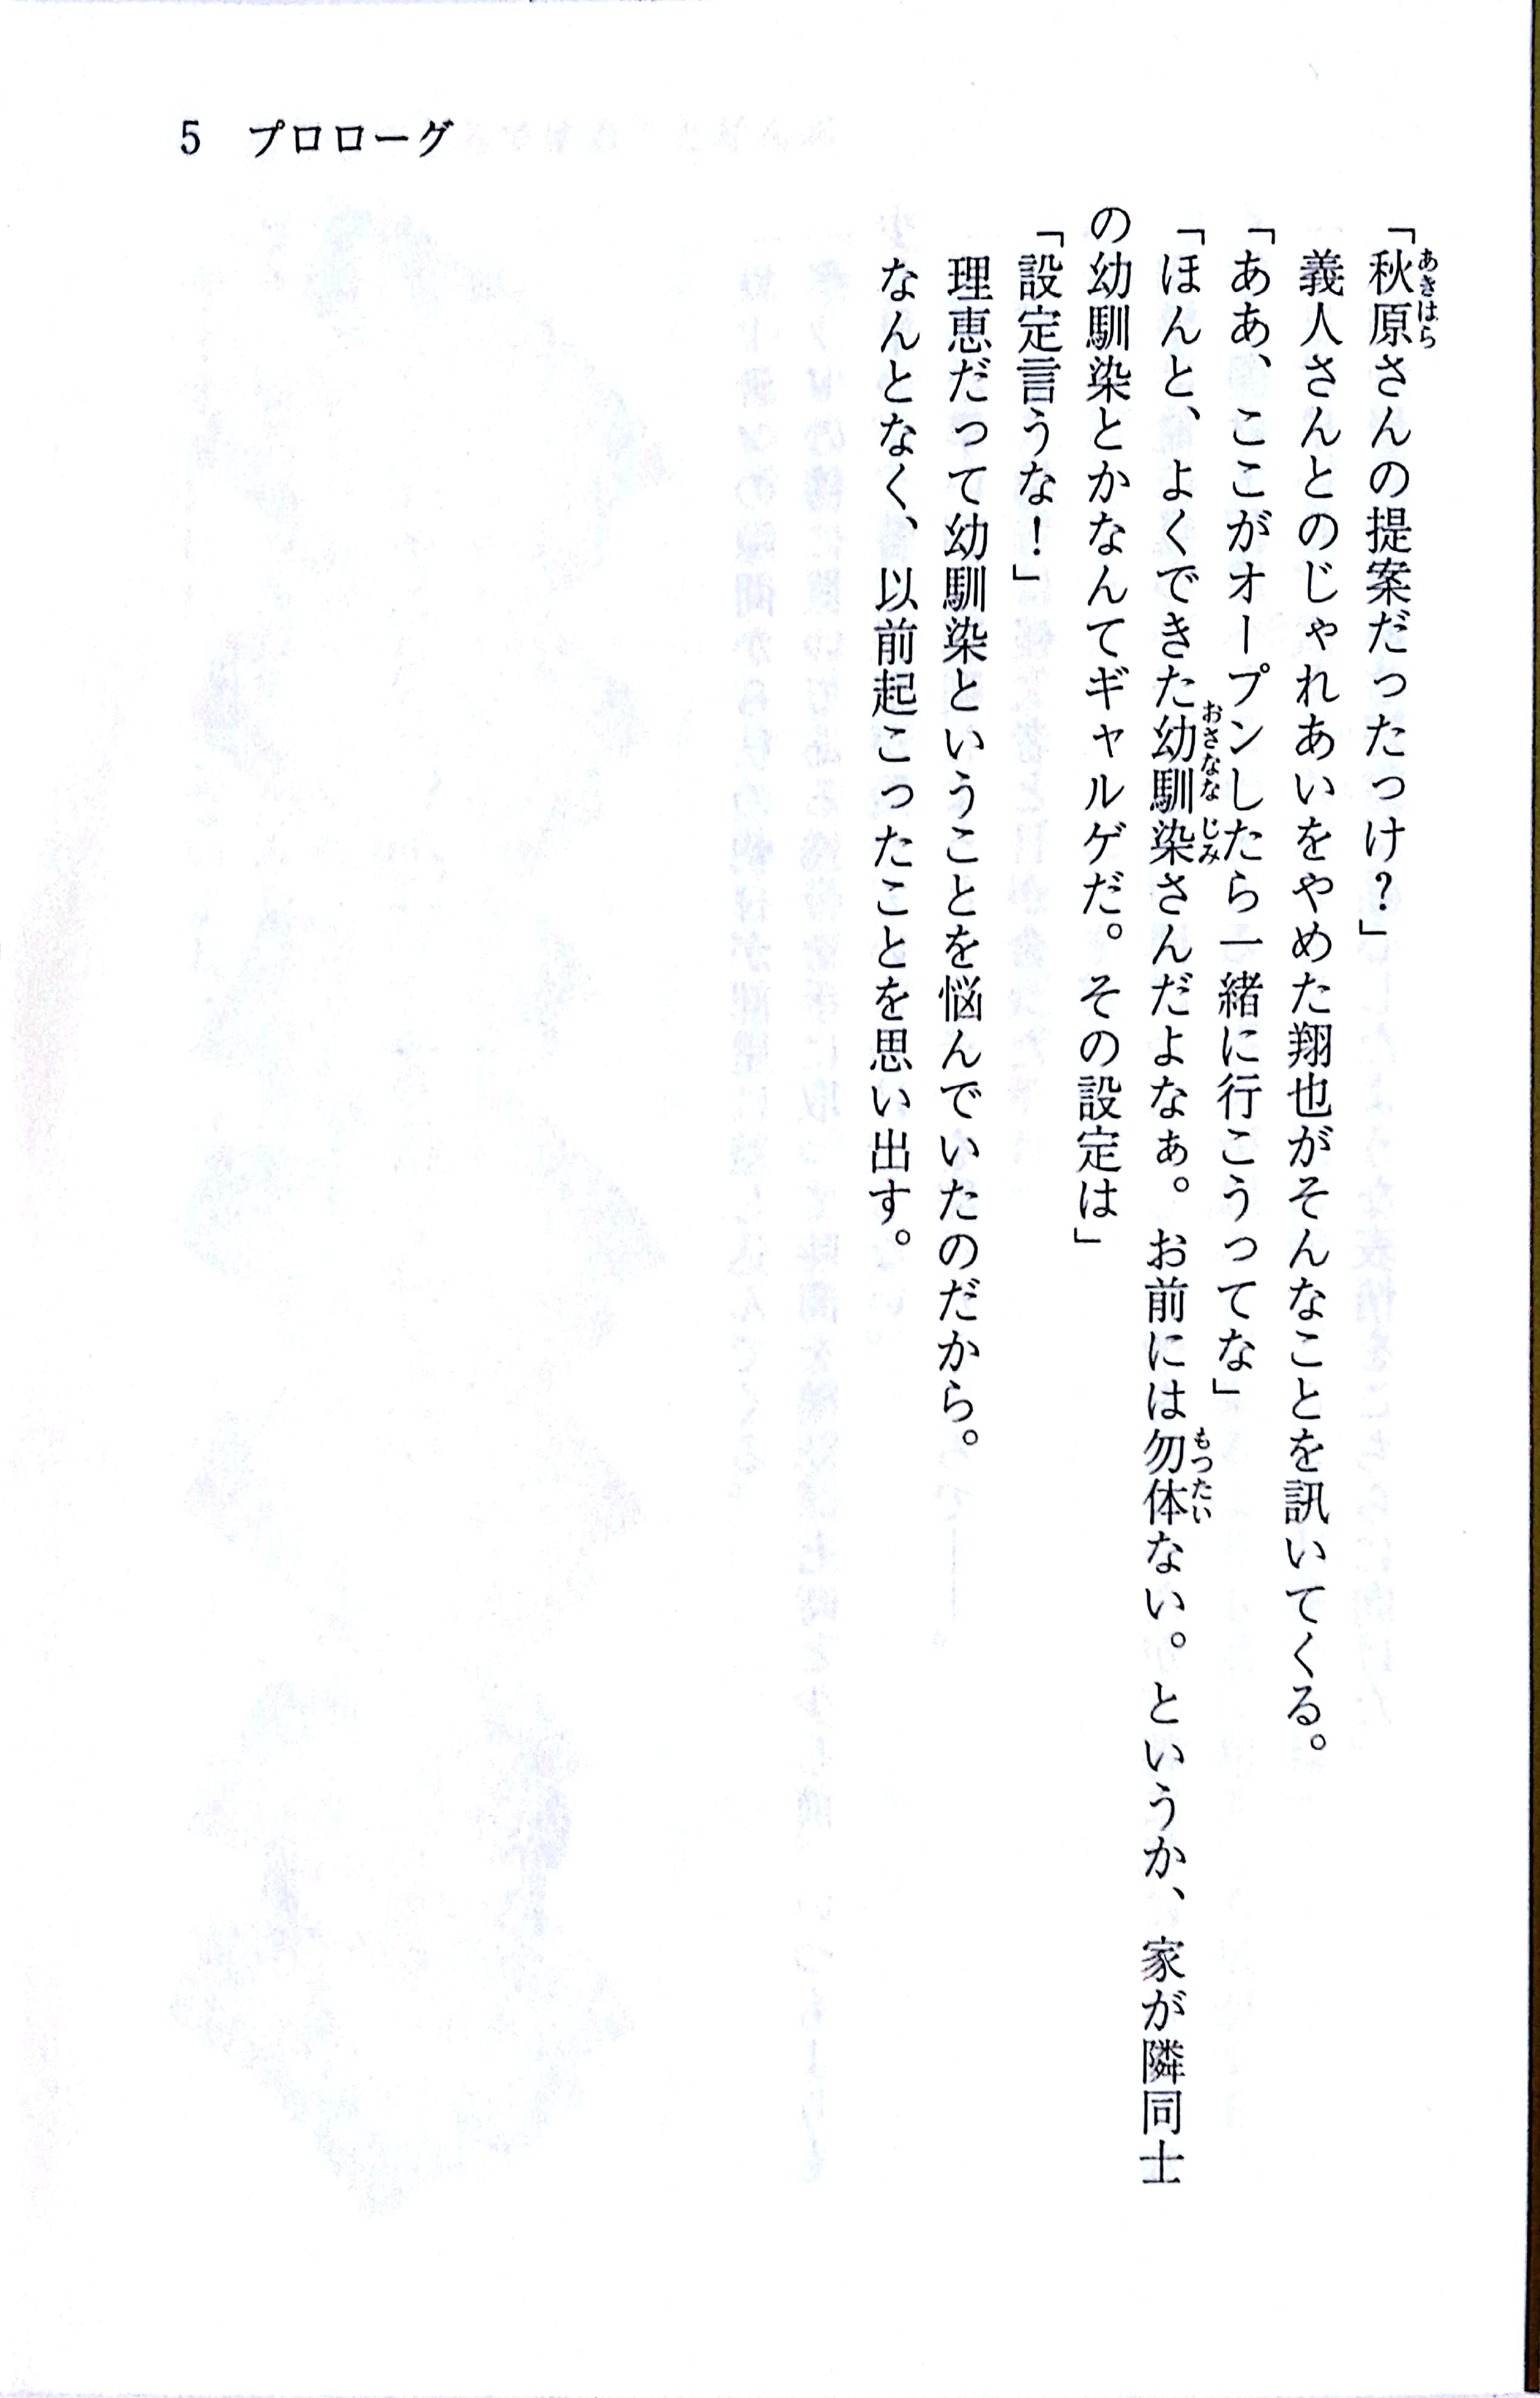 5 プロローグ
「秋原さんの提案だったっけ?」
義人さんとのじゃれあいをやめた翔也がそんなことを訊いてくる。
「ああ、ここがオープンしたら一緒に行こうってな」
「ほんと、よくできた幼馴染さんだよなぁ。お前には勿体ない。というか、家が隣同士
の幼馴染とかなんてギャルゲだ。その設定は」
「設定言うな!」
理恵だって幼馴染ということを悩んでいたのだから。
なんとなく、以前起こったことを思い出す。